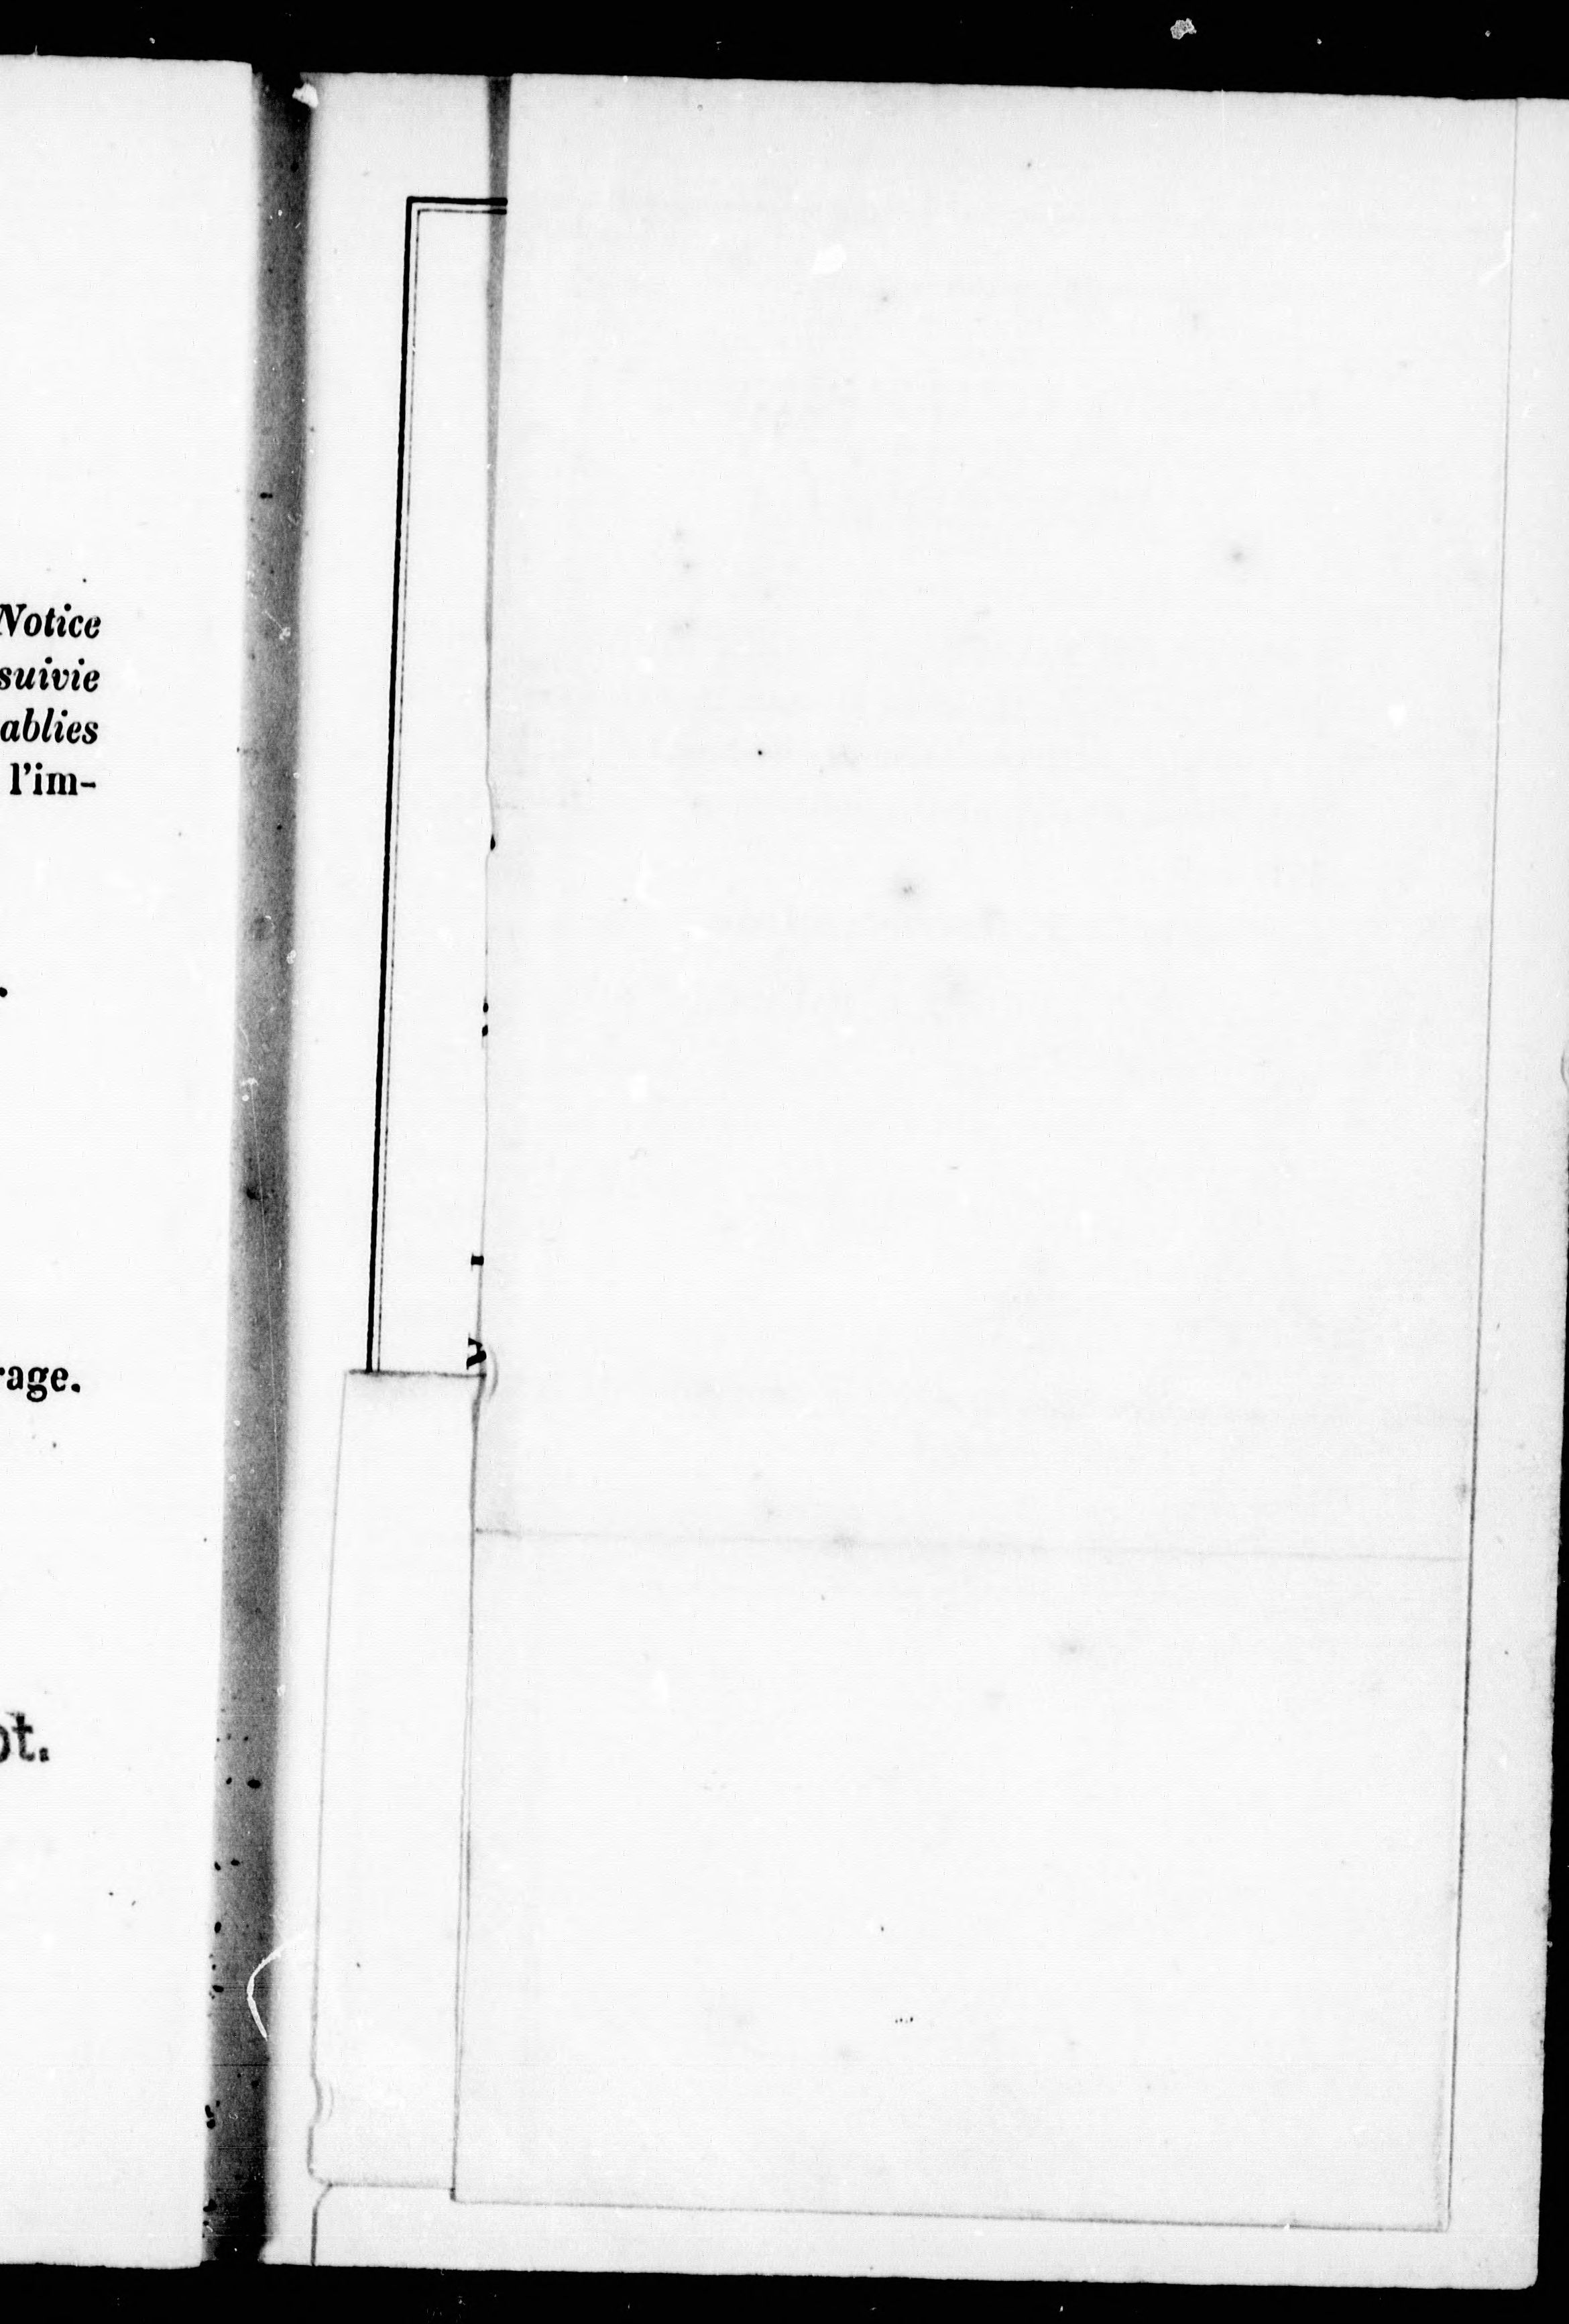 Notice
suivie
ablies
l'im-
rage.
ot.